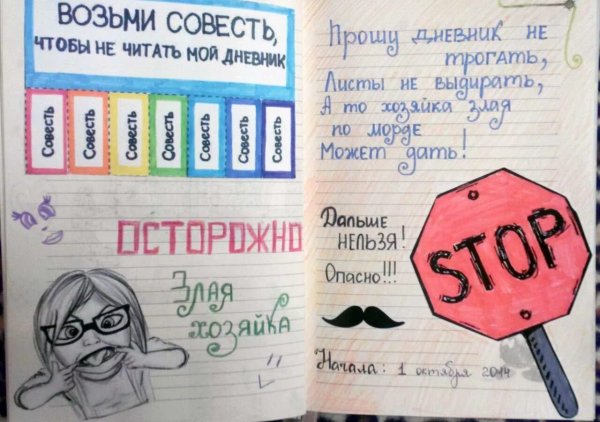 ВОЗЬМИ СОВЕСТЬ,
ЧТОБЫ НЕ ЧИТАТЬ МОЙ ДНЕВНИК
Совесть
Совесть
Совесть
Совесть
Совесть
Совесть
Совесть
ОСТОРОЖНО
Злая
хозяйка
Прошу дневник не
трогать,
Листы не выдирать,
А то хозяйка злая
по морде
Может дать!
Дальше
НЕЛЬЗЯ!
Опасно!!!
STOP
Начала: 1 октября 2014